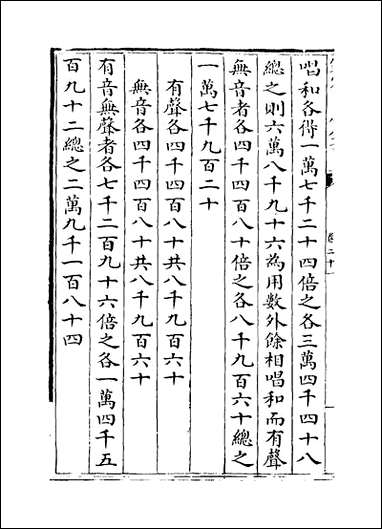 唱和各得一萬七千二十四倍之各三萬四千四十八
總之則六萬八千九十六為用數外餘相唱和而有聲
無音者各四千四百八十倍之各八千九百六十總之
一萬七千九百二十
有聲各四千四百八十共八千九百六十
無音各四千四百八十共八千九百六十
有音無聲者各七千二百九十六倍之各一萬四千五
百九十二總之二萬九千一百八十四